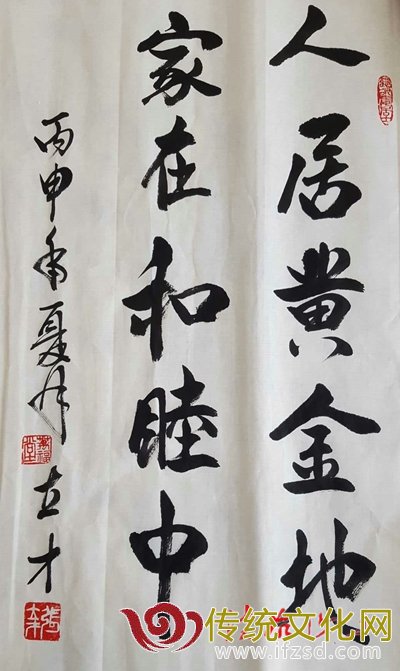 人居黄金地
家在和睦中
丙申年夏月
立才
传统文化网
www.ifzsd.com